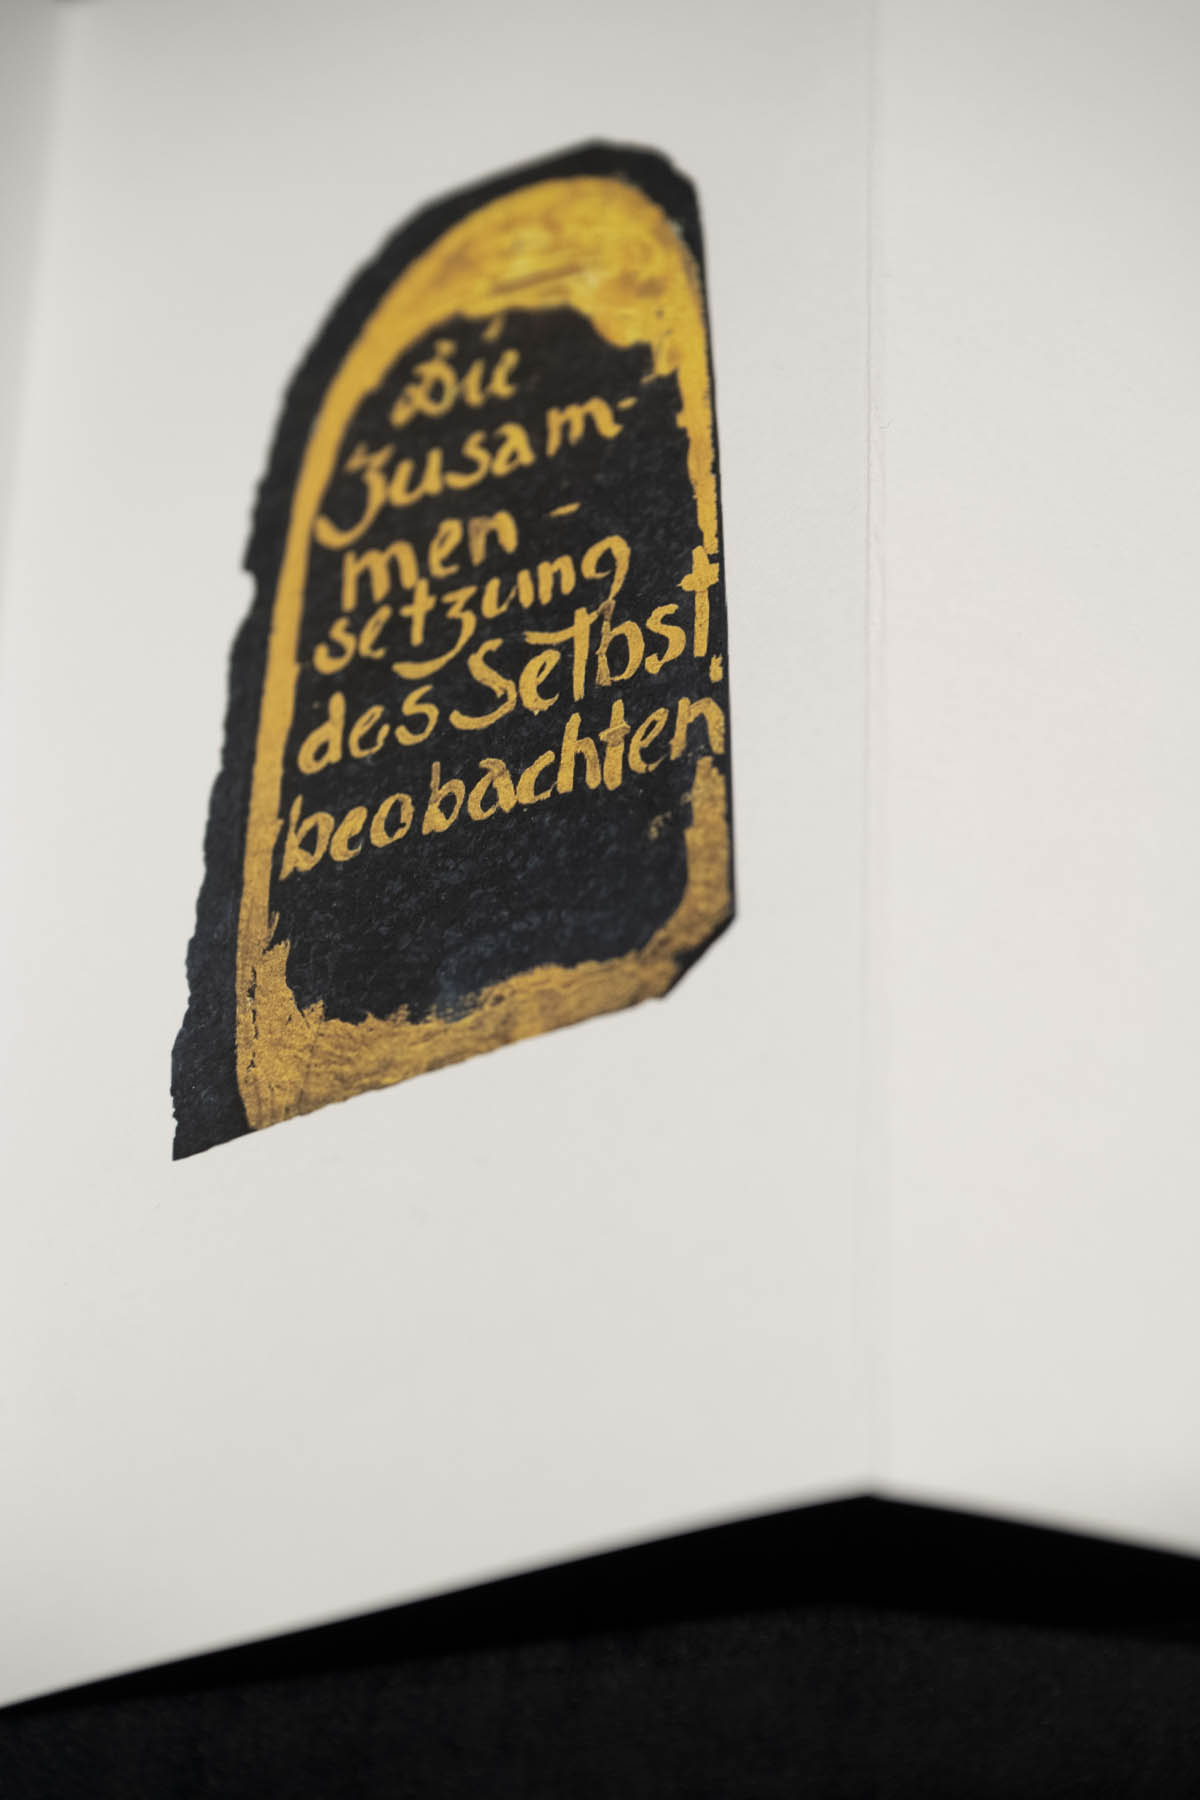 Die
Zusam-
men-
setzung
des Selbst
beobachten.